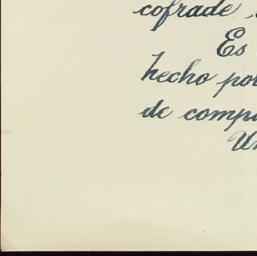 cofrade
Es
hecho por
de compa
Un